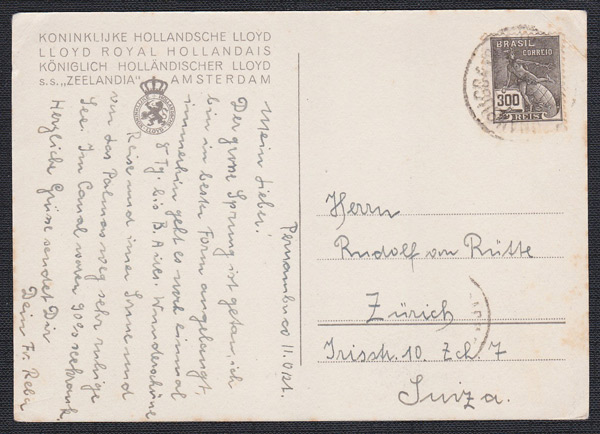 KONINKLIJKE HOLLANDSCHE LLOYD
LLOYD ROYAL HOLLANDAIS
KÖNIGLICH HOLLÄNDISCHER LLOYD
s.s. „ZEELANDIA” AMSTERDAM
BRASIL
CORREIO
300
REIS
Pernambuco 11. Okt.
Mein Lieber!
Der grosse Sprung ist getan, ich
bin in bester Form angelangt.
immerhin geht es noch einmal
8 Tg. bis B. Aires. Wunderschöne
Reise und immer Sonne und
von Las Palmas weg sehr ruhige
See. Im Canal waren 90% seekrank.
Herzliche Grüsse sendet Dir
Dein Fr. Reber
Herrn
Rudolf von Rütte
Zürich
Irisstr. 10. Zch. 7
Suiza.